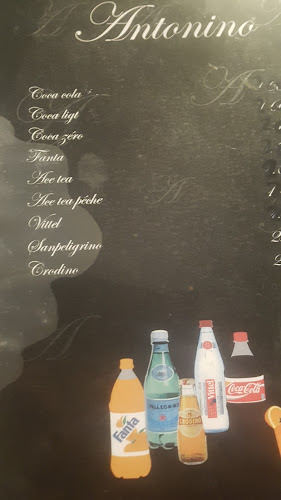 Antonino
Coca cola
Coca ligt
Coca zéro
Fanta
Ace tea
Ace tea pêche
Vittel
Sanpeligrino
Crodino
Fanta
S.PELLEGRINO
CRODINO
Coca-Cola